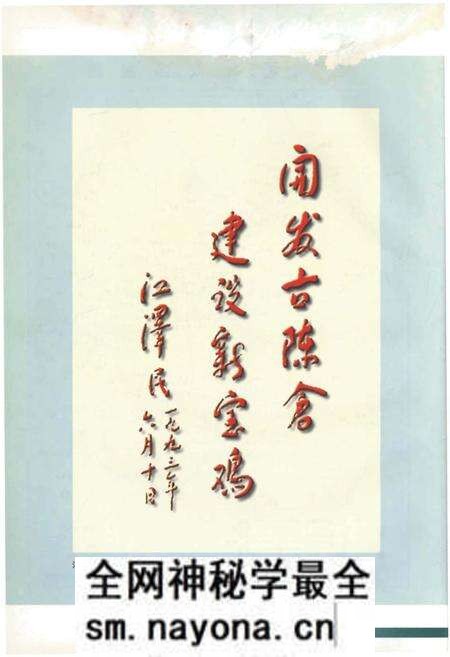 开发古陈仓
建设新宝鸡
江泽民
一九九三年
六月十日
全网神秘学最全
sm.nayona.cn